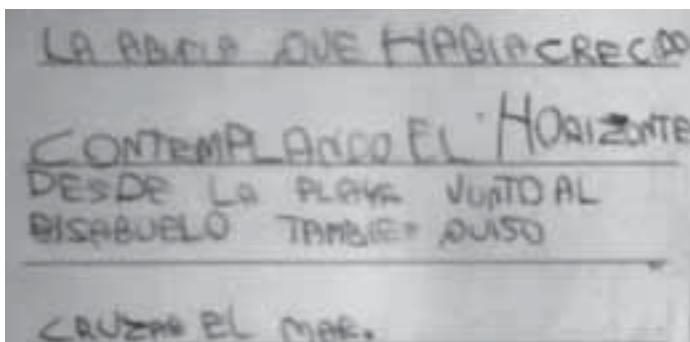 LA ABUELA QUE HABIA CRECIDO
CONTEMPLANDO EL HORIZONTE
DESDE LA PLAYA JUNTO AL
BISABUELO TAMBIEN QUISO
CRUZAR EL MAR.